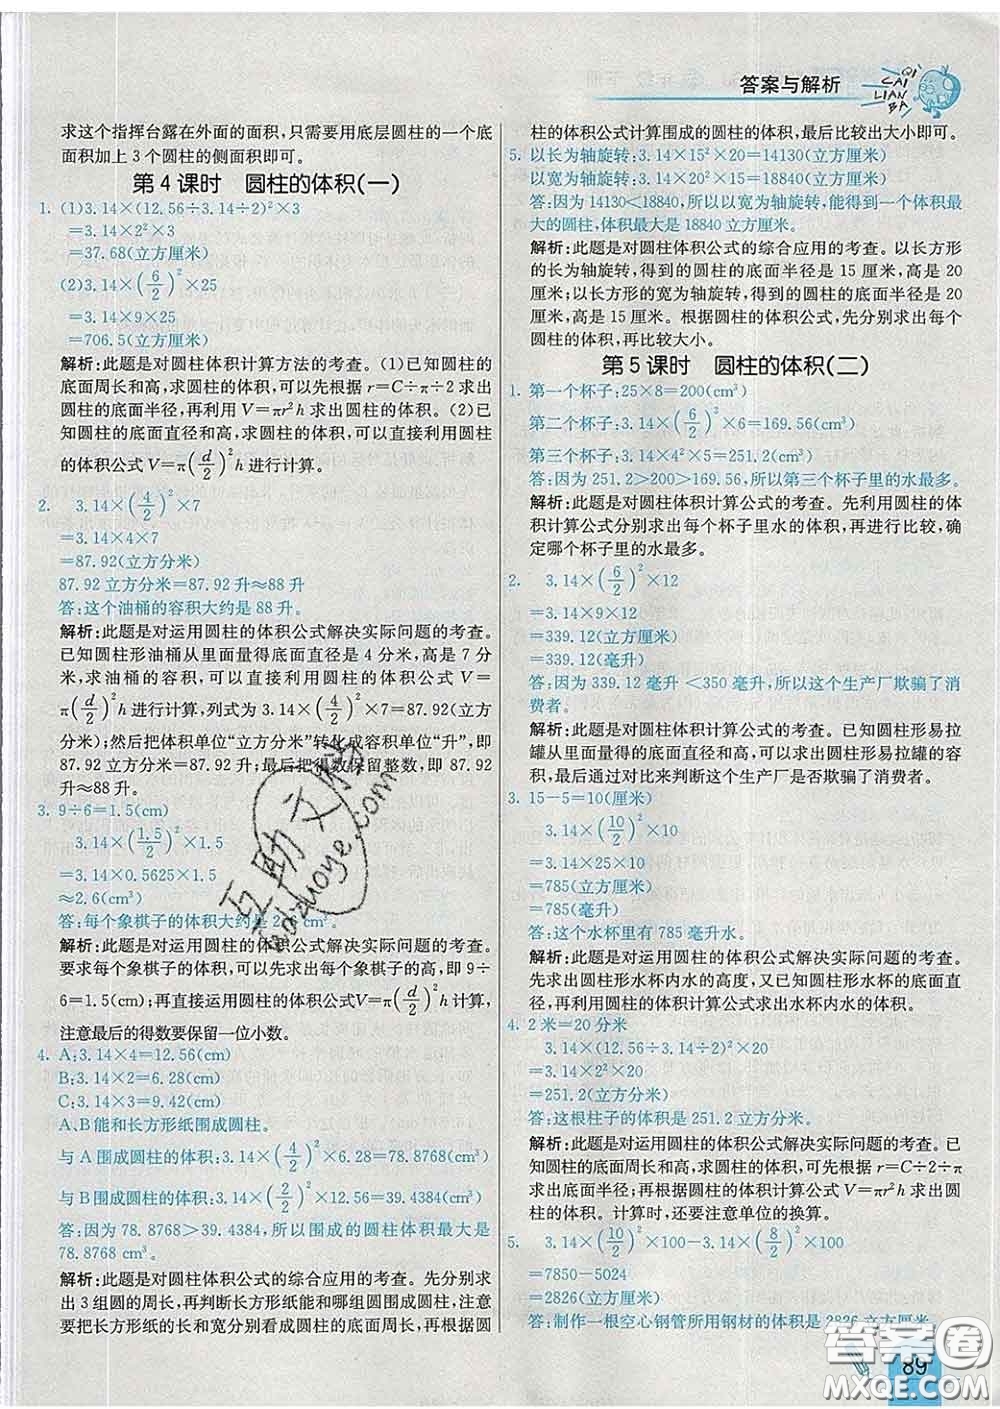 答案与解析
QI
CAI
LIAN
BA
求这个指挥台露在外面的面积，只需要用底层圆柱的一个底
面积加上3个圆柱的侧面积即可。
第4课时　圆柱的体积(一)
1. (1)3.14×(12.56÷3.14÷2)²×3
=3.14×2²×3
=37.68(立方厘米)
(2)3.14×(6/2)²×25
=3.14×9×25
=706.5(立方厘米)
解析:此题是对圆柱体积计算方法的考查。(1)已知圆柱的
底面周长和高，求圆柱的体积，可以先根据r=C÷π÷2求出
圆柱的底面半径，再利用V=πr²h求出圆柱的体积。(2)已
知圆柱的底面直径和高，求圆柱的体积，可以直接利用圆柱
的体积公式V=π(d/2)²h进行计算。
2. 3.14×(4/2)²×7
=3.14×4×7
=87.92(立方分米)
87.92立方分米=87.92升≈88升
答:这个油桶的容积大约是88升。
解析:此题是对运用圆柱的体积公式解决实际问题的考查。
已知圆柱形油桶从里面量得底面直径是4分米，高是7分
米，求油桶的容积，可以直接利用圆柱的体积公式V=
π(d/2)²h进行计算，列式为3.14×(4/2)²×7=87.92(立方
分米);然后把体积单位“立方分米”转化成容积单位“升”，即
87.92立方分米=87.92升;最后把得数保留整数，即87.92
升≈88升。
3. 9÷6=1.5(cm)
3.14×(1.5/2)²×1.5
=3.14×0.5625×1.5
≈2.6(cm³)
答:每个象棋子的体积大约是2.6 cm³。
解析:此题是对运用圆柱的体积公式解决实际问题的考查。
要求每个象棋子的体积，可以先求出每个象棋子的高，即9÷
6=1.5(cm);再直接运用圆柱的体积公式V=π(d/2)²h计算，
注意最后的得数要保留一位小数。
4. A:3.14×4=12.56(cm)
B:3.14×2=6.28(cm)
C:3.14×3=9.42(cm)
A、B能和长方形纸围成圆柱。
与A围成圆柱的体积:3.14×(4/2)²×6.28=78.8768(cm³)
与B围成圆柱的体积:3.14×(2/2)²×12.56=39.4384(cm³)
答:因为78.8768>39.4384，所以围成的圆柱体积最大是
78.8768 cm³。
解析:此题是对圆柱体积公式的综合应用的考查。先分别求
出3组圆的周长，再判断长方形纸能和哪组圆围成圆柱，注意
要把长方形纸的长和宽分别看成圆柱的底面周长，再根据圆
柱的体积公式计算围成的圆柱的体积，最后比较出大小即可。
5. 以长为轴旋转:3.14×15²×20=14130(立方厘米)
以宽为轴旋转:3.14×20²×15=18840(立方厘米)
答:因为14130<18840，所以以宽为轴旋转，能得到一个体积最
大的圆柱，体积最大是18840立方厘米。
解析:此题是对圆柱体积公式的综合应用的考查。以长方形
的长为轴旋转，得到的圆柱的底面半径是15厘米，高是20
厘米;以长方形的宽为轴旋转，得到的圆柱的底面半径是20
厘米，高是15厘米。根据圆柱的体积公式，先分别求出每个圆柱的体积，
再比较大小。
第5课时　圆柱的体积(二)
1. 第一个杯子:25×8=200(cm³)
第二个杯子:3.14×(6/2)²×6=169.56(cm³)
第三个杯子:3.14×4²×5=251.2(cm³)
答:因为251.2>200>169.56，所以第三个杯子里的水最多。
解析:此题是对圆柱体积计算公式的考查。先利用圆柱的体
积计算公式分别求出每个杯子里水的体积，再进行比较，确
定哪个杯子里的水最多。
2. 3.14×(6/2)²×12
=3.14×9×12
=339.12(立方厘米)
=339.12(毫升)
答:因为339.12毫升<350毫升，所以这个生产厂欺骗了消
费者。
解析:此题是对圆柱体积计算公式的考查。已知圆柱形易拉
罐从里面量得的底面直径和高，可以求出圆柱形易拉罐的容
积，最后通过对比来判断这个生产厂是否欺骗了消费者。
3. 15-5=10(厘米)
3.14×(10/2)²×10
=3.14×25×10
=785(立方厘米)
=785(毫升)
答:这个水杯里有785毫升水。
解析:此题是对运用圆柱的体积公式解决实际问题的考查。
先求出圆柱形水杯内水的高度，又已知圆柱形水杯的底面直
径，再利用圆柱的体积计算公式求出水杯内水的体积。
4. 2米=20分米
3.14×(12.56÷3.14÷2)²×20
=3.14×2²×20
=251.2(立方分米)
答:这根柱子的体积是251.2立方分米。
解析:此题是对运用圆柱的体积公式解决实际问题的考查。已
知圆柱的底面周长和高，可以先根据r=C÷2÷π求出圆柱的
底面半径;再根据圆柱的体积计算公式V=πr²h求出圆柱的体
积。计算时，还要注意单位的换算。
5. 3.14×(10/2)²×100-3.14×(8/2)²×100
=7850-5024
=2826(立方厘米)
答:制作一根空心钢管所用钢材的体积是2826立方厘米。
89
答案圈
MXQE.COM